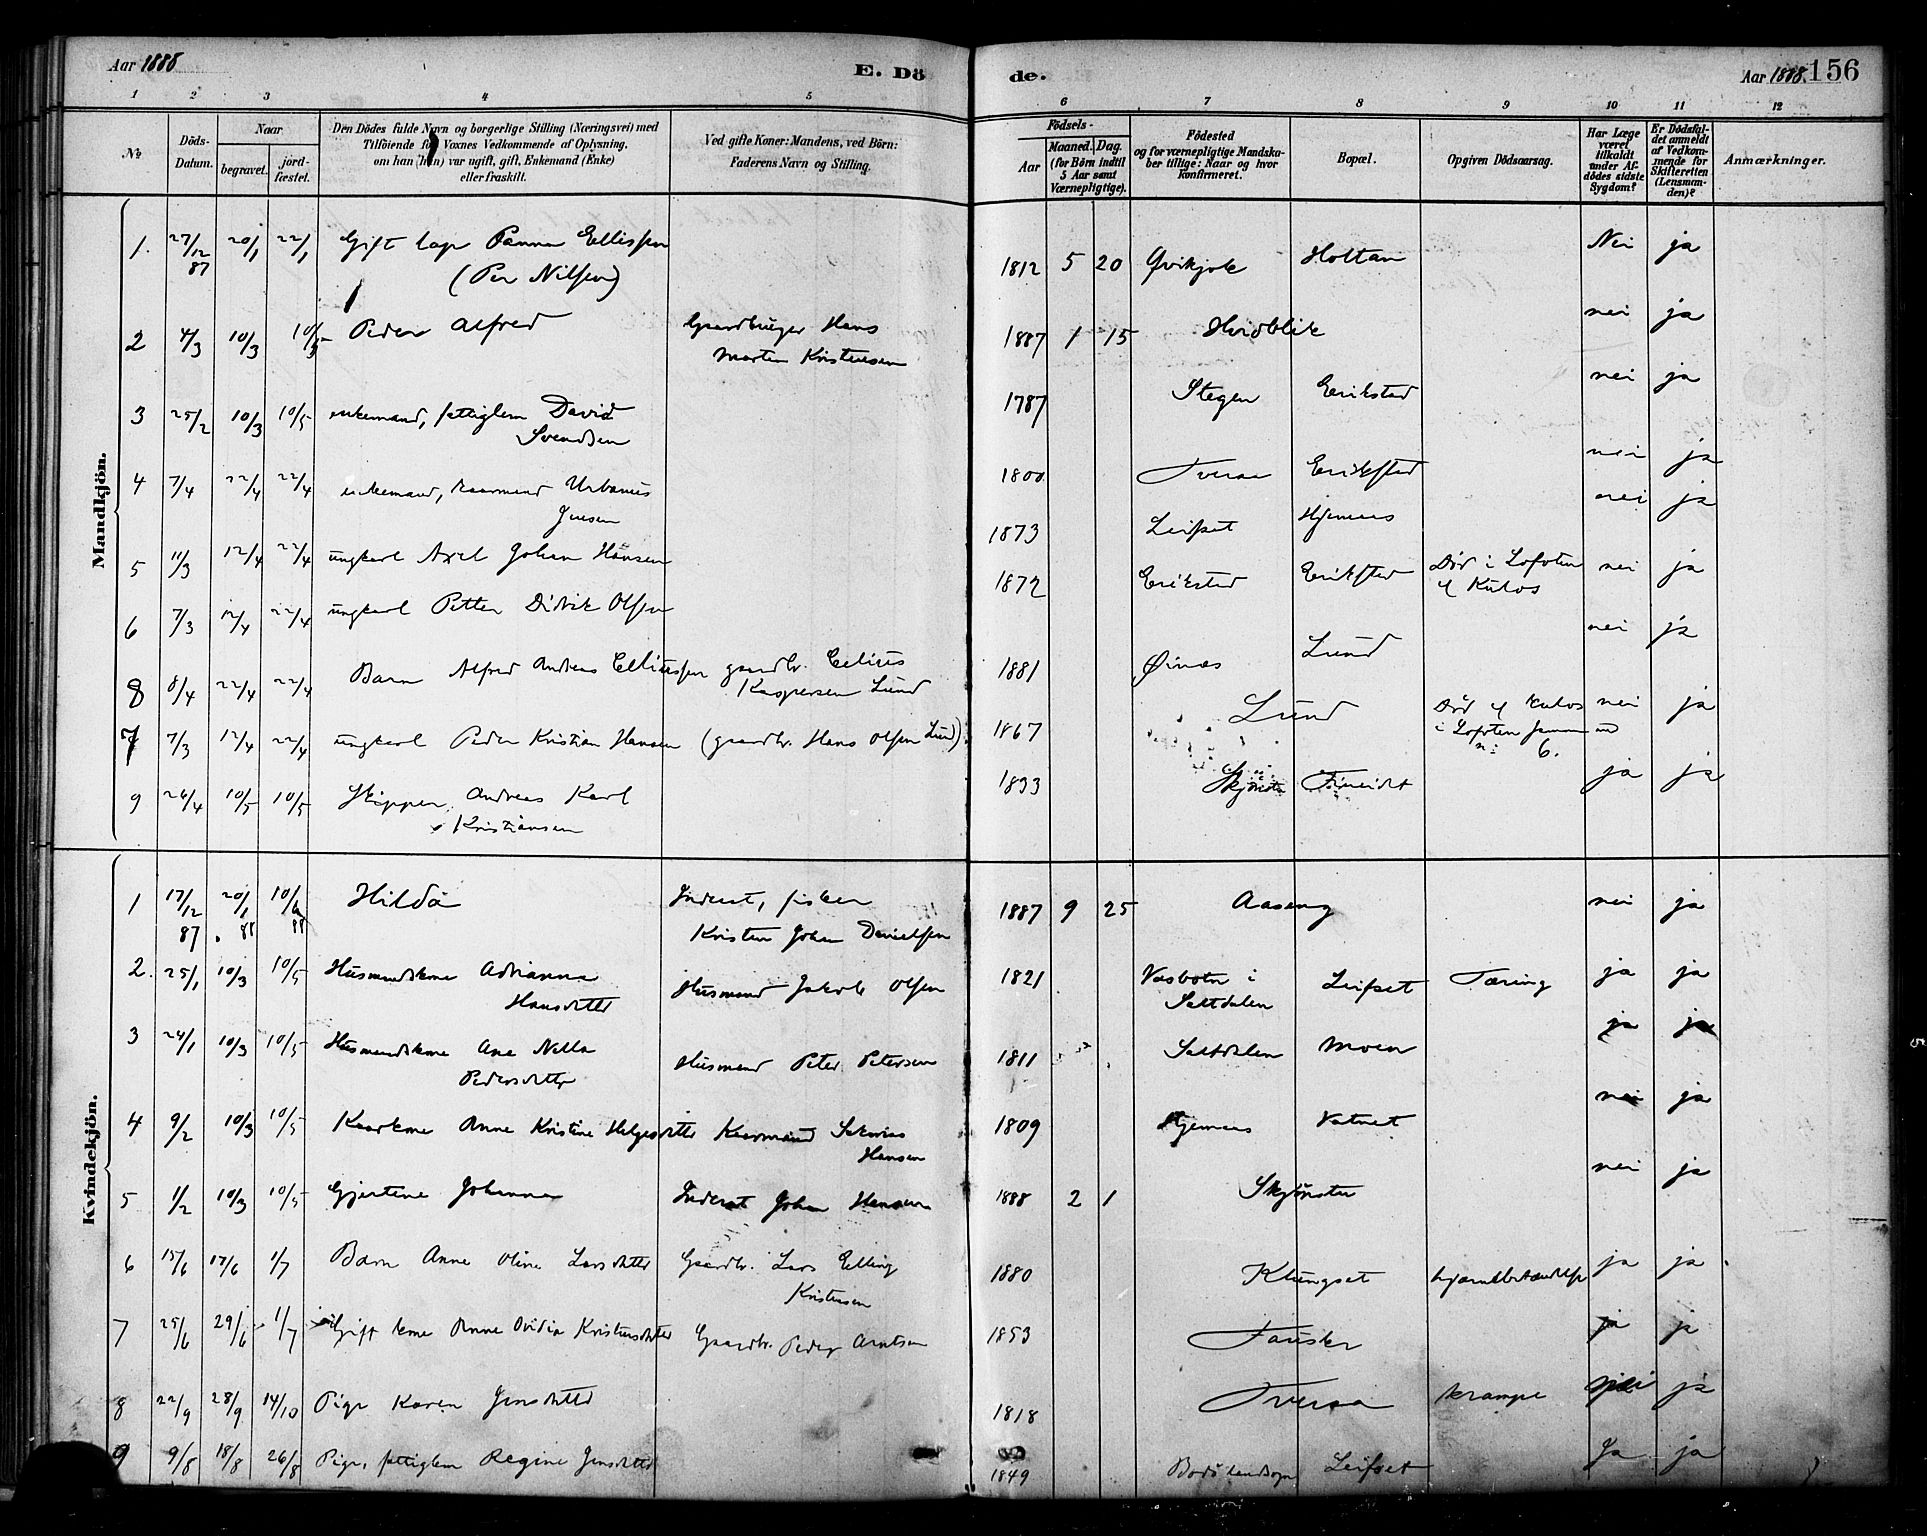 Aar 1888
E. Dö
de.
Aar 1888. 156
1 2 3 4 5 6 7 8 9 10 11 12
№
Döds-Datum.
Naar
begravet.
jordfæstet.
Den Dödes fulde Navn og borgerlige Stilling (Næringsvei) med
Tilföiende for Voxnes Vedkommende af Oplysning,
om han (hun) var ugift, gift, Enkemand (Enke)
eller fraskilt.
Ved gifte Koner: Mandens, ved Börn:
Faderens Navn og Stilling.
Födsels-
Aar
Maaned. Dag.
(for Börn indtil
5 Aar samt
Værnepligtige).
Födested
og for værnepligtige Mandskaber tillige: Naar og hvor
Konfirmeret.
Bopæl.
Opgiven Dödsaarsag.
Har Læge
været
tilkaldt
under Afdödes sidste
Sygdom?
Er Dödsfaldet anmeldt
af Vedkommende for
Skifteretten
(Lensmanden)?
Anmærkninger.
Mandkjön.
1. 27/12 87 20/1 22/1 Gift lap Panna Ellissen
(Per Nilssen) 1812 5 20 Qvikjok Holtan Nei ja
2 4/3 10/3 10/5 Peder Alfred Gaardbruger Hans
Morten Kristensen 1887 1 15 Hvidblik nei ja
3 25/2 10/3 10/5 enkemand, fattiglem David
Svendsen 1787 Stegen Erikstad nei ja
4 7/4 22/4 22/4 enkemand, kaarmand Urbanus
Jensen 1800 Tveraa Erikstad nei ja
5 11/3 12/4 22/4 ungkarl Axel Johan Hansen 1873 Leifset Hjemaas nei ja
6 7/3 12/4 22/4 ungkarl Petter Didrik Olsen 1872 Erikstad Erikstad Död i Lofoten
af Kulos nei ja
8 8/4 22/4 22/4 Barn Alfred Andreas Elliussen gaardbr. Eelius
Kaspersen Lund 1881 Öinæs Lund nei ja
7 7/3 12/4 22/4 ungkarl Peder Kristian Hansen (gaardbr. Hans Olsen Lund) 1867 Lund Död af Kulos
i Lofoten sammen med
nr. 6. nei ja
9 26/4 10/5 10/5 Skipper Andreas Karl
Kristiansen 1833 Skjönsta Fineidet ja ja
Kvindekjön.
1 17/12 87 20/1 88 10/6 88 Hilda Inderst, fisker
Kristen Johan Danielsen 1887 9 25 Aaseng nei ja
2. 25/1 10/3 10/5 Husmandskone Adrianna
Hansdatter Husmand Jakob Olsen 1821 Vasbotn i
Saltdalen Leifset Tæring ja ja
3 24/1 10/3 10/5 Husmandskone Ane Nella
Pedersdatter Husmand Peter Petersen 1811 Saltdalen Moen ja ja
4 9/2 10/3 10/5 Kaarkone Anne Kristine Helgesdatter Kaarmand Sakarias
Hansen 1809 Hjemaas Vatnet nei ja
5 1/2 10/3 10/5 Gjertine Johanna Inderst Johan Hansen 1888 2 1 Skjönsta nei ja
6 15/6 17/6 1/7 Barn Anne Oline Larsdatter Gaardbr. Lars Elling
Kristensen 1880 Klungset hjernebetændelse ja ja
7 25/6 29/6 1/7 Gift kone Anne Ovidia Kristensdatter Gaardbr. Peder Arntsen 1853 Fauske ja ja
8 22/9 28/9 14/10 Pige Karen Jensdatter 1818 Tveraa krampe nei ja
9 9/8 18/8 26/8 Pige, fattiglem Regine Jensdatter 1849 Bodö landsogn Leifset Ja ja